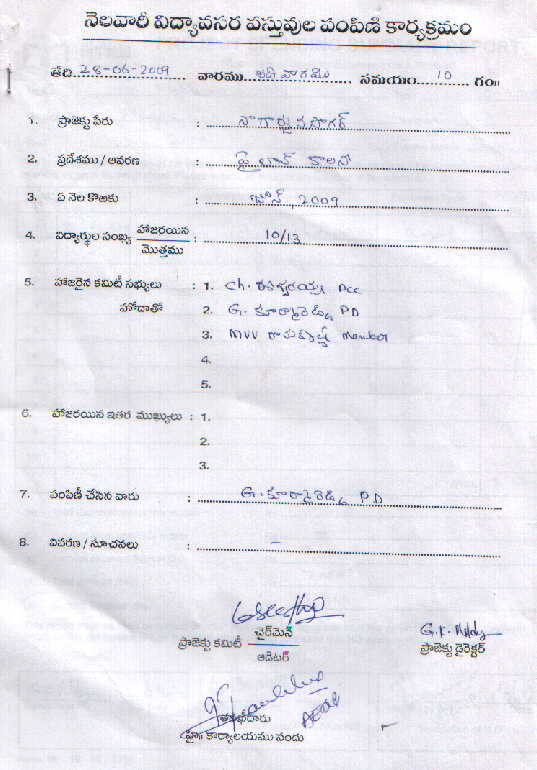 నెలవారీ విద్యావసర వస్తువుల పంపిణి కార్యక్రమం
తేది 28-06-2009 వారము ఆదివారము సమయం 10 గం॥
1. ప్రాజెక్టు పేరు : నాగార్జునసాగర్
2. ప్రదేశము / ఆవరణ : పైలాన్ కాలనీ
3. ఏ నెల కొఱకు : జూన్ 2009
4. విద్యార్థుల సంఖ్య హాజరయిన / మొత్తము : 10/13
5. హాజరైన కమిటీ సభ్యులు : 1. Ch.
హోదాతో 2. G. PD
3. MVV రామకృష్ణ Member
4.
5.
6. హాజరయిన ఇతర ముఖ్యులు : 1.
2.
3.
7. పంపిణీ చేసిన వారు : G. PD
8. వివరణ / సూచనలు : –
ప్రాజెక్టు కమిటీ ఛైర్‌మెన్ / ఆడిటర్
G.K. Reddy
ప్రాజెక్టు డైరెక్టర్
కార్యాలయము నందు